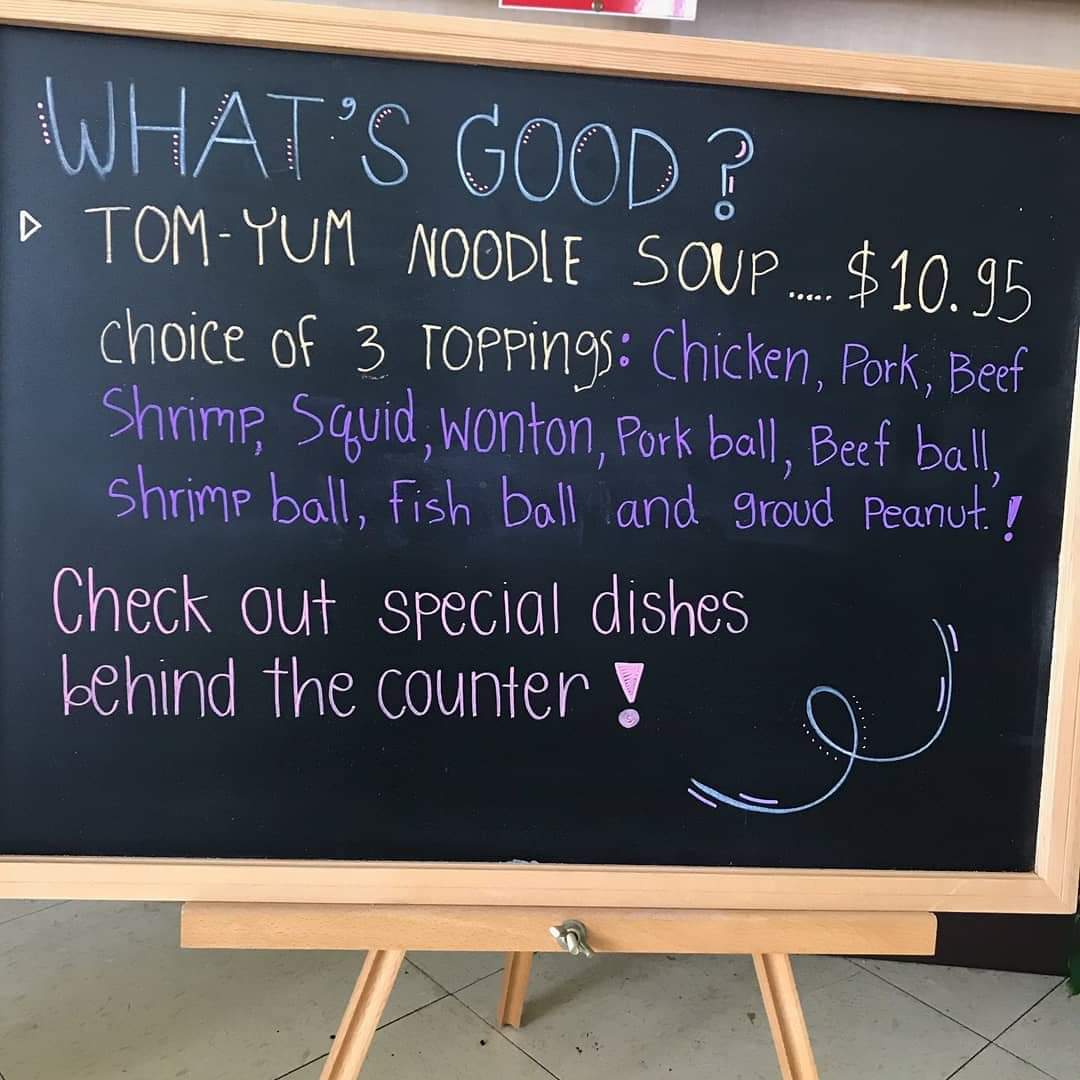 WHAT'S GOOD?
TOM-YUM NOODLE SOUP..... $10.95
choice of 3 TOPPings: Chicken, Pork, Beef
Shrimp, Squid, Wonton, Pork ball, Beef ball,
Shrimp ball, Fish ball and groud Peanut.!
Check out special dishes
behind the counter!